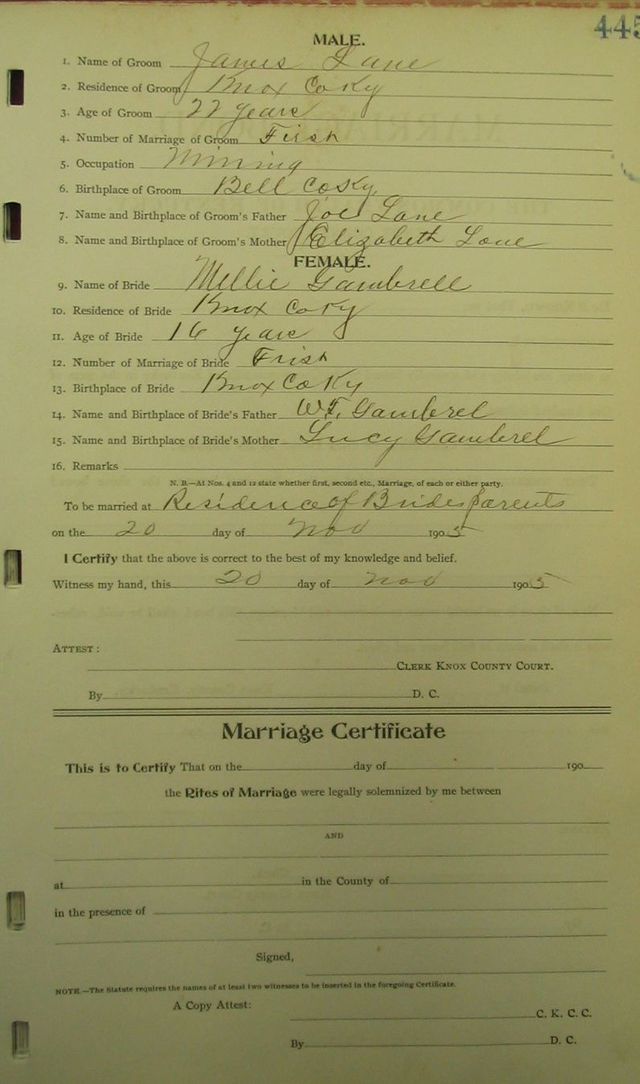 445
MALE.
1. Name of Groom James Lane
2. Residence of Groom Knox Co Ky
3. Age of Groom 22 years
4. Number of Marriage of Groom First
5. Occupation Mining
6. Birthplace of Groom Bell Co Ky
7. Name and Birthplace of Groom's Father Joe Lane
8. Name and Birthplace of Groom's Mother Elizabeth Lane
FEMALE.
9. Name of Bride Millie Gambrell
10. Residence of Bride Knox Co Ky
11. Age of Bride 16 years
12. Number of Marriage of Bride First
13. Birthplace of Bride Knox Co Ky
14. Name and Birthplace of Bride's Father W.F. Gambrel
15. Name and Birthplace of Bride's Mother Lucy Gambrel
16. Remarks
N. B.—At Nos. 4 and 12 state whether first, second etc., Marriage, of each or either party.
To be married at Residence of Brides parents
on the 20 day of Nov 1905
I Certify that the above is correct to the best of my knowledge and belief.
Witness my hand, this 20 day of Nov 1905
ATTEST:
CLERK KNOX COUNTY COURT.
By D. C.
Marriage Certificate
This is to Certify That on the day of 190
the Rites of Marriage were legally solemnized by me between
AND
at in the County of
in the presence of
Signed,
NOTE.—The Statute requires the names of at least two witnesses to be inserted in the foregoing Certificate.
A Copy Attest:
C. K. C. C.
By D. C.